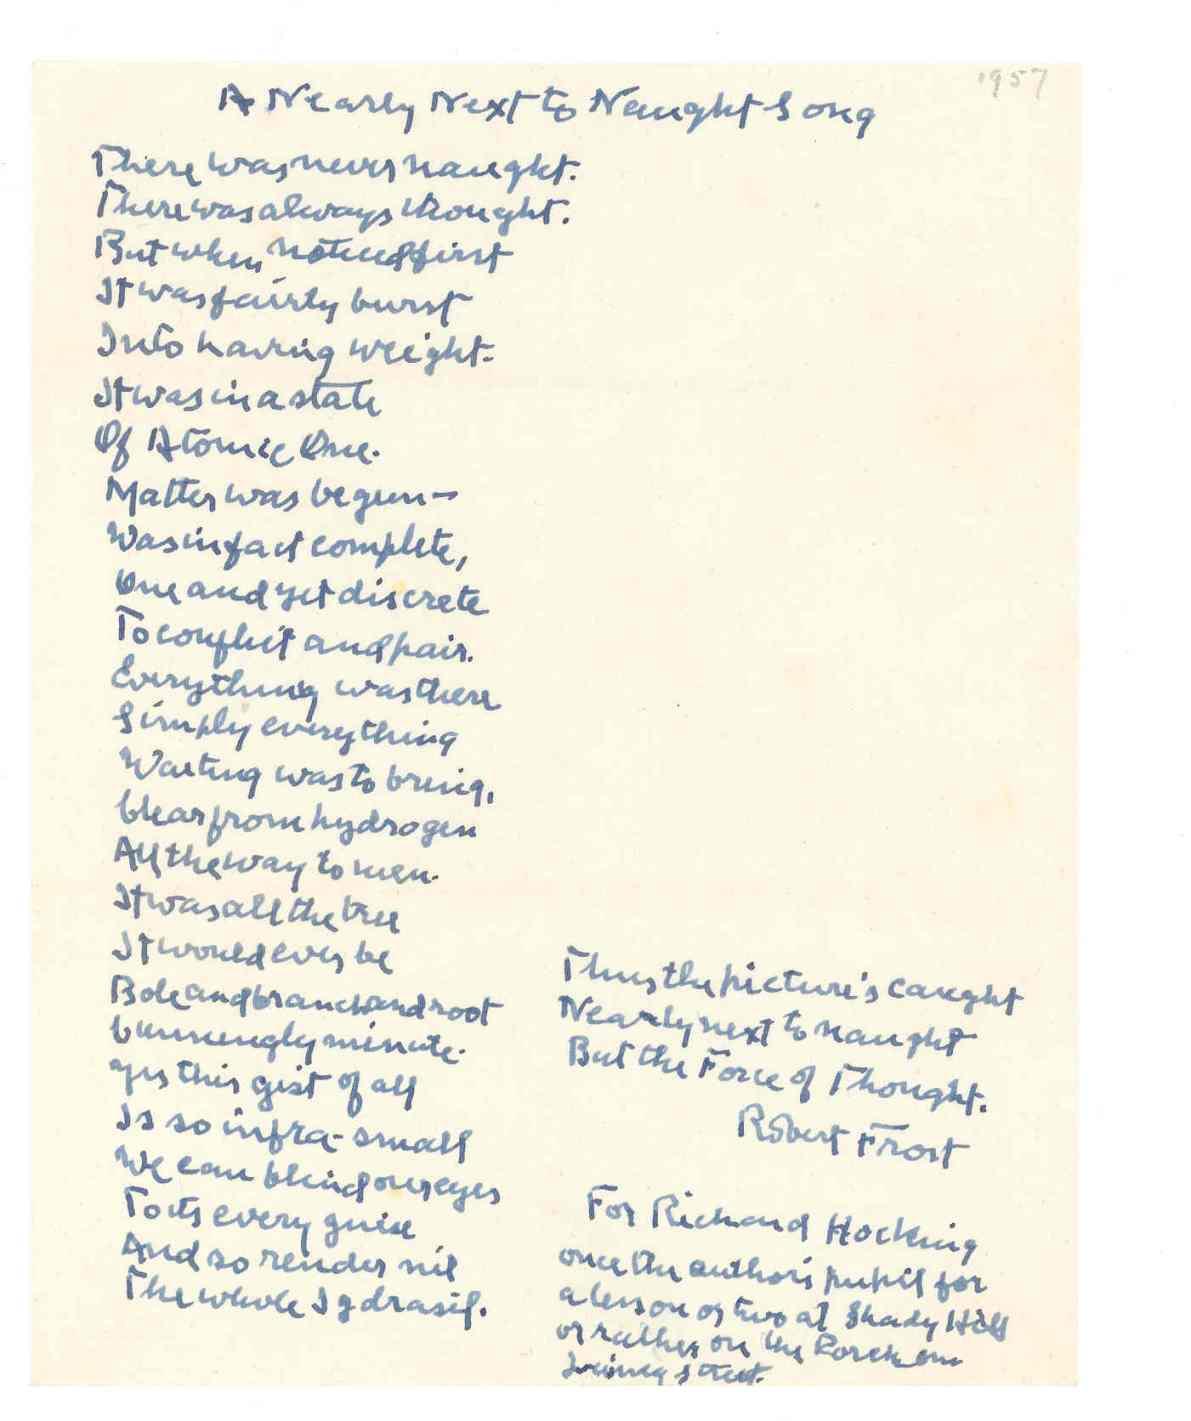 1957
A Nearly Next to Naught Song
There was never naught.
There was always thought.
But when noticed first
It was fairly burst
Into having weight.
It was in a state
Of Atomic One.
Matter was begun—
Was in fact complete,
One and yet discrete
To conflict and pair.
Everything was there
Simply everything
Waiting was to bring,
Clear from hydrogen
All the way to men.
It was all the tree
It would ever be
Bole and branch and root
Cunningly minute.
Yes this gist of all
Is so infra-small
We can blind our eyes
To its every guise
And so render nil
The whole Igdrasil.
Thus the picture's caught
Nearly next to naught
But the Force of Thought.
Robert Frost
For Richard Hocking
once the author's pupil for
a lesson or two at Shady Hill
or rather on the Porch on
Irving Street.